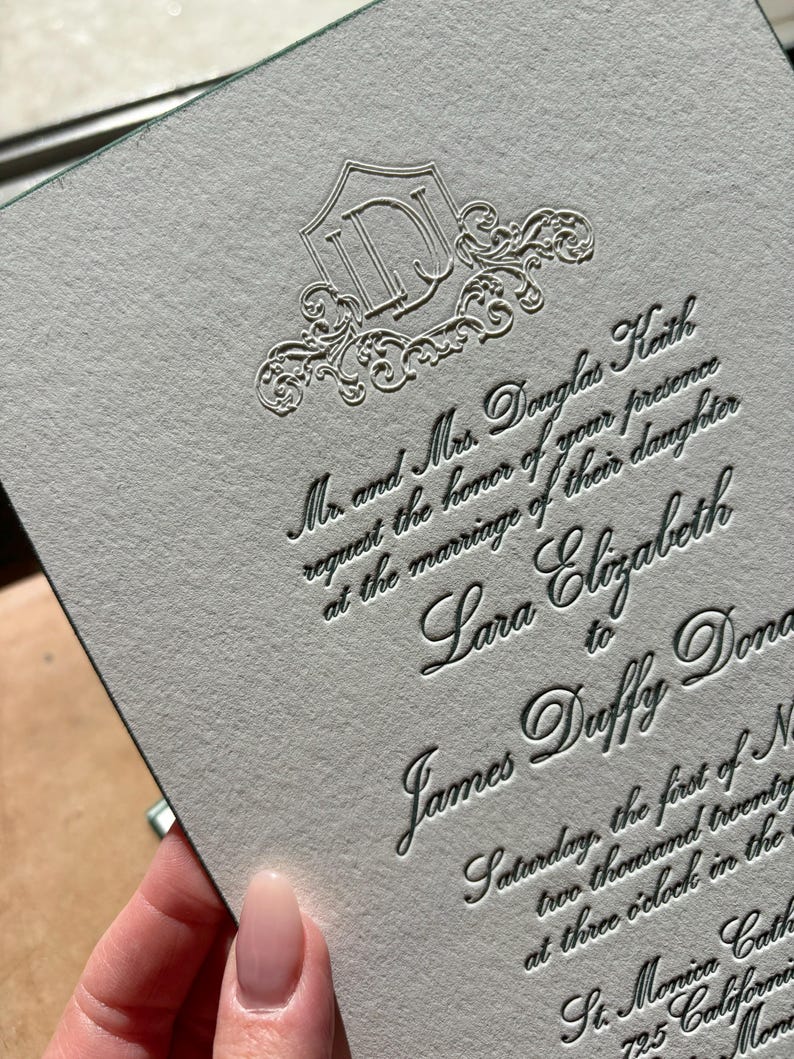 LDJ
Mr. and Mrs. Douglas Keith
request the honor of your presence
at the marriage of their daughter
Lara Elizabeth
to
James Duffy Dona
Saturday, the first of N
two thousand twenty
at three o'clock in the
St. Monica Cath
725 California
Mon